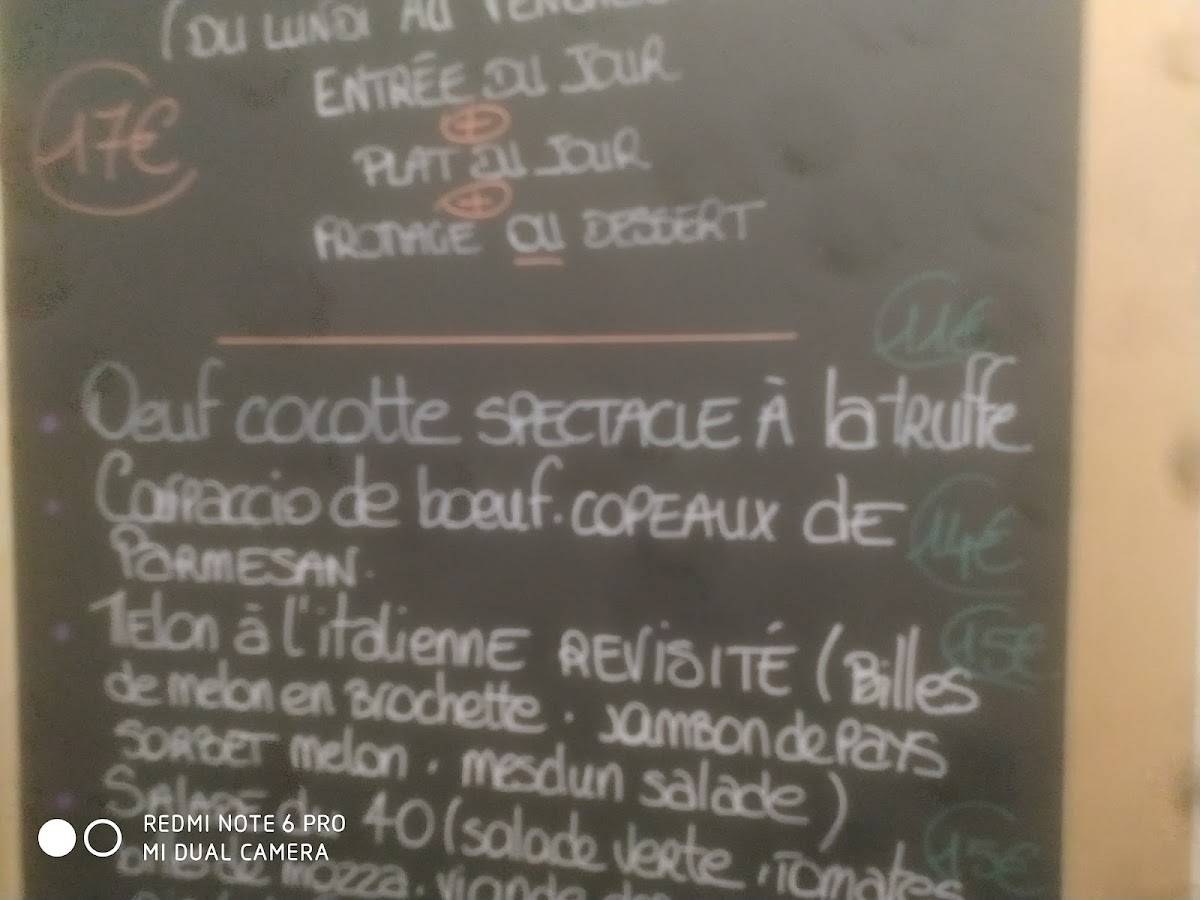 (DU LUNDI AU VENDREDI
ENTRÉE DU JOUR
17€
+
PLAT DU JOUR
+
FROMAGE OU DESSERT
11€
Oeuf cocotte SPECTACLE À la truffe
Carpaccio de boeuf. COPEAUX dE
14€
PARMESAN.
MElon à l'italiennE REVISITÉ (Billes
15€
de melon en Brochette. JAMBON de PAYS
SORBET melon. mesclun salade)
SALADE du 40 (salade verte, Tomates
15€
de mozza. viande des
REDMI NOTE 6 PRO
MI DUAL CAMERA